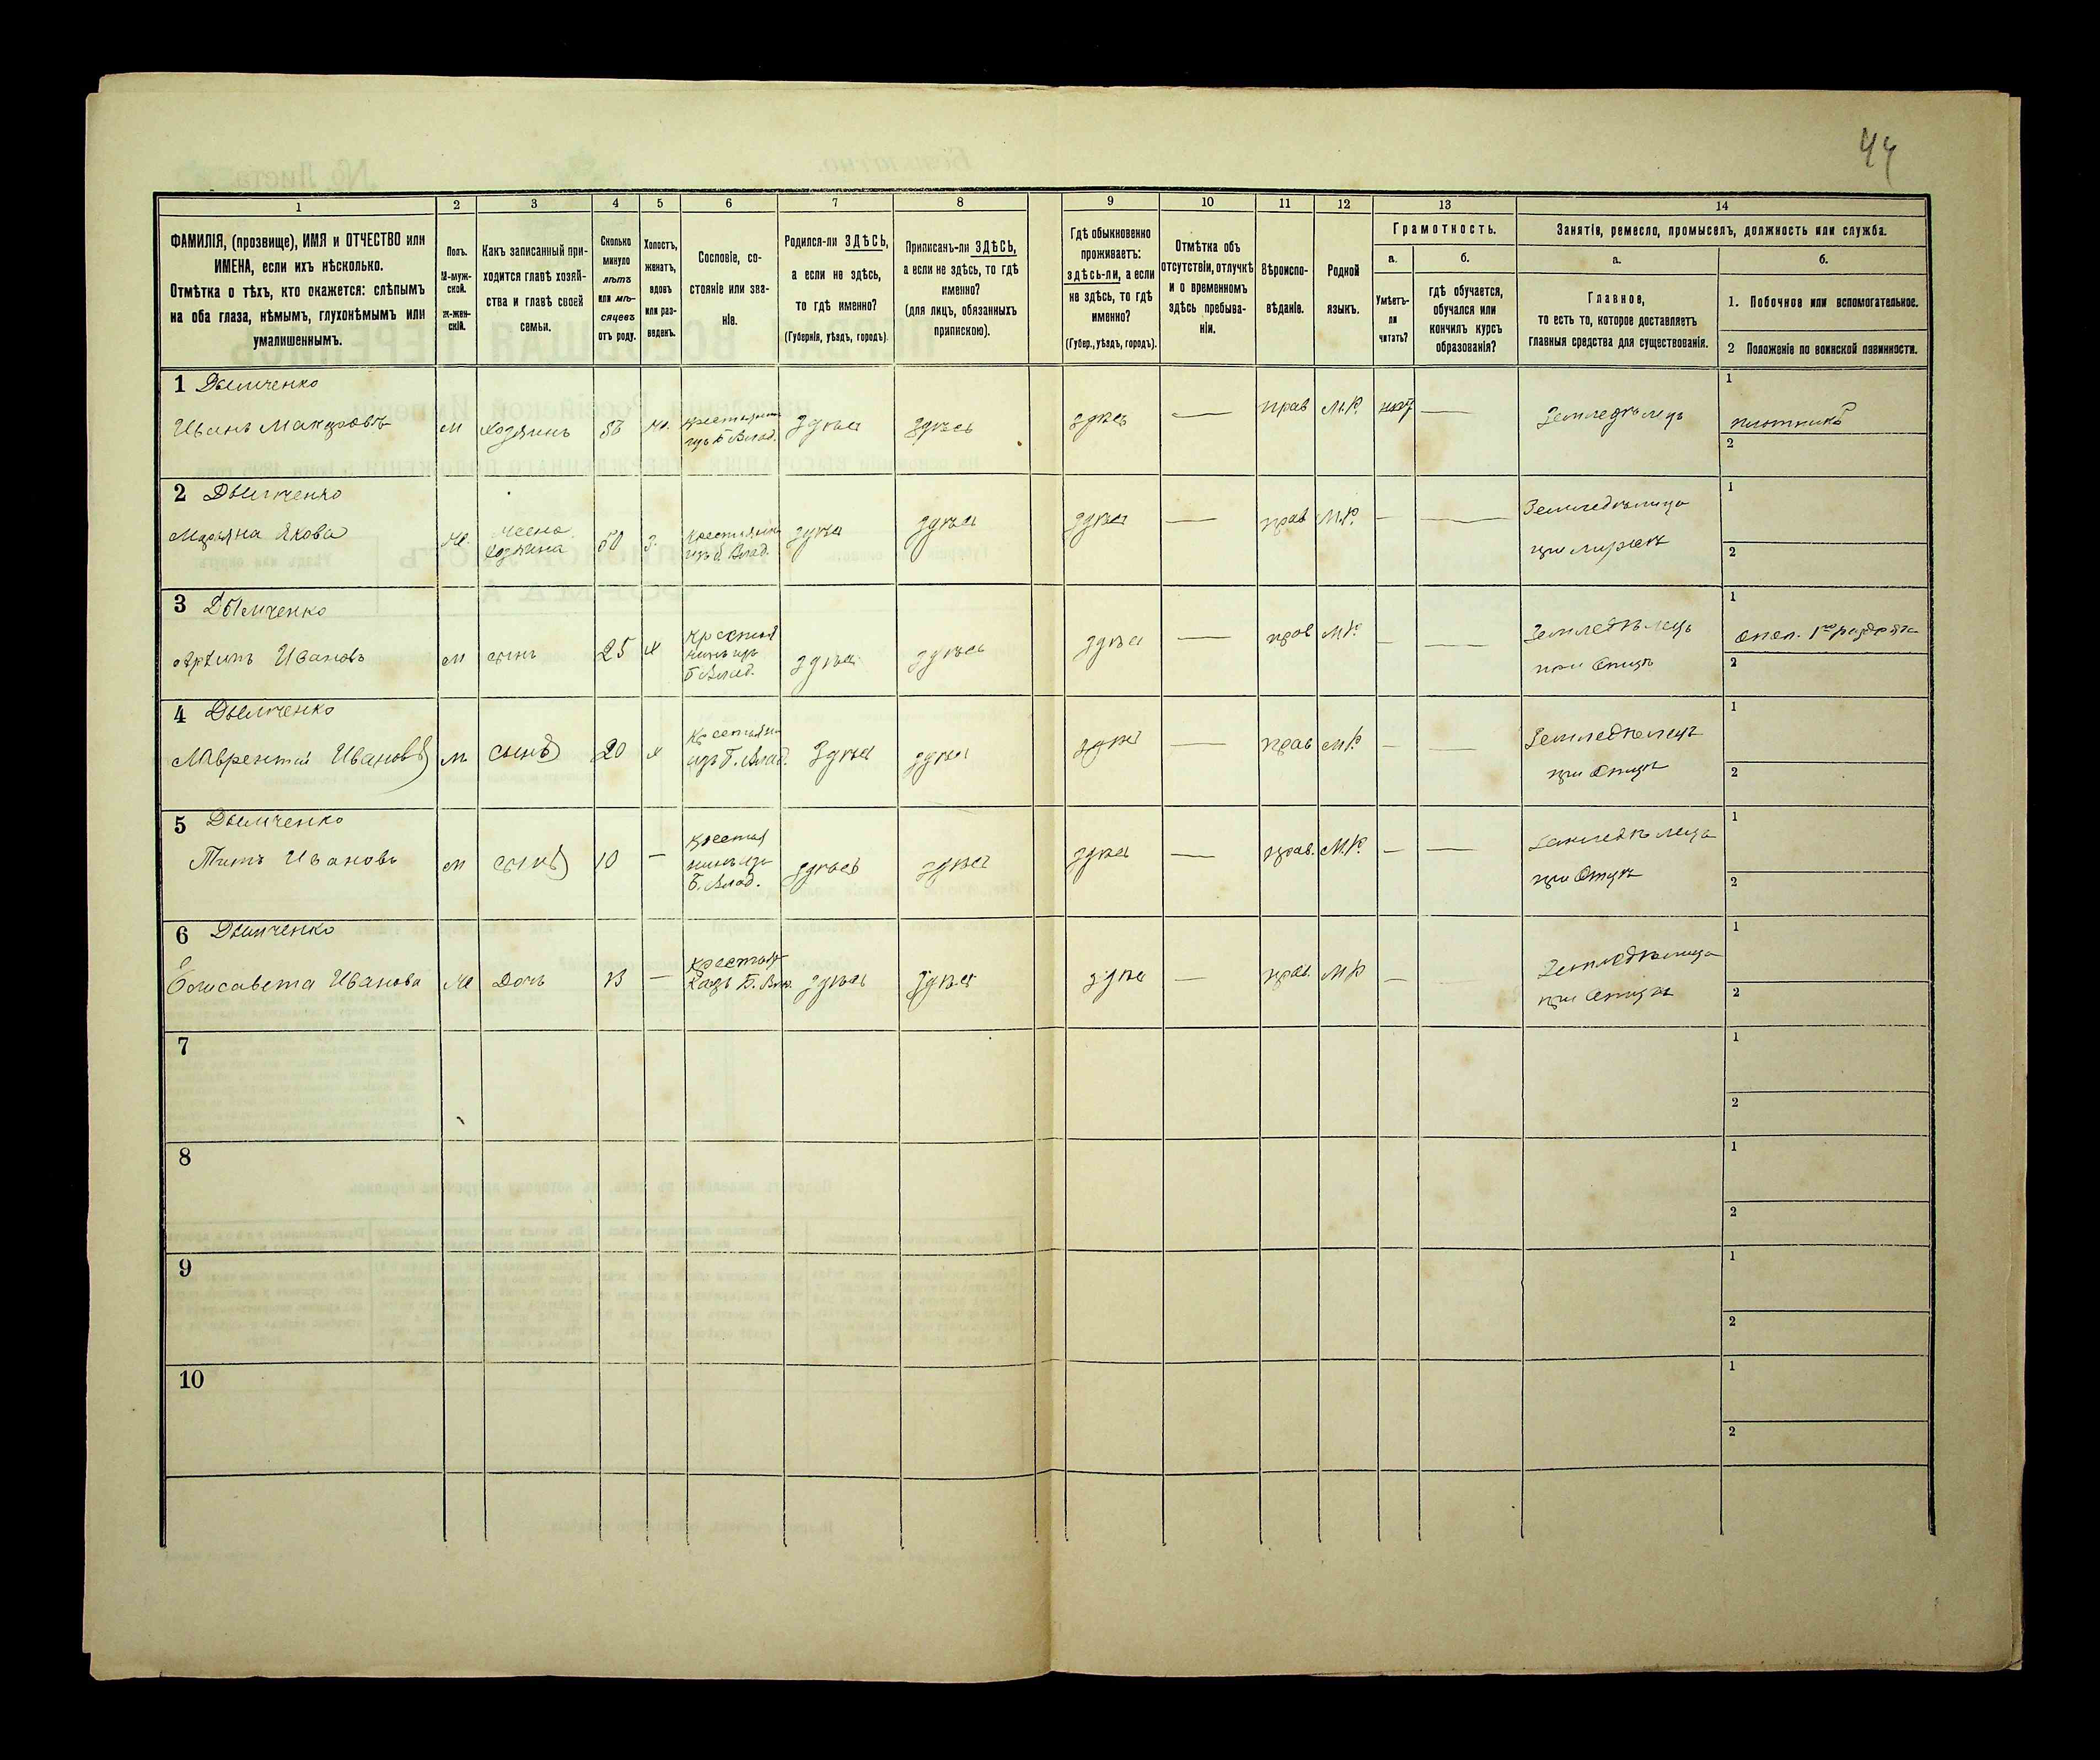 44
1 2 3 4 5 6 7 8 9 10 11 12 13 14
ФАМИЛІЯ, (прозвище), ИМЯ и ОТЧЕСТВО или
ИМЕНА, если ихъ нѣсколько.
Отмѣтка о тѣхъ, кто окажется: слѣпымъ
на оба глаза, нѣмымъ, глухонѣмымъ или
умалишеннымъ.
Полъ.
М-муж-
ской.
ж-жен-
скій.
Какъ записанный при-
ходится главѣ хозяй-
ства и главѣ своей
семьи.
Сколько
минуло
лѣтъ
или мѣ-
сяцевъ
отъ роду.
Холостъ,
женатъ,
вдовъ
или раз-
веденъ.
Сословіе, со-
стояніе или зва-
ніе.
Родился-ли ЗДѢСЬ,
а если не здѣсь,
то гдѣ именно?
(Губернія, уѣздъ, городъ).
Приписанъ-ли ЗДѢСЬ,
а если не здѣсь, то гдѣ
именно?
(для лицъ, обязанныхъ
припискою).
Гдѣ обыкновенно
проживаетъ:
здѣсь-ли, а если
не здѣсь, то гдѣ
именно?
(Губер., уѣздъ, городъ).
Отмѣтка объ
отсутствіи, отлучкѣ
и о временномъ
здѣсь пребыва-
ніи.
Вѣроиспо-
вѣданіе.
Родной
языкъ.
Грамотность.
а.
Умѣетъ-
ли
читать?
б.
гдѣ обучается,
обучался или
кончилъ курсъ
образованія?
Занятіе, ремесло, промыселъ, должность или служба.
а.
Главное,
то есть то, которое доставляетъ
главныя средства для существованія.
б.
1. Побочное или вспомогательное.
2 Положеніе по воинской повинности.
1 Дымченко
Иванъ м хозяинъ ж. Здѣсь Здѣсь здѣсь — прав М.Р. нѣтъ — Земледѣлецъ
1 плотникъ
2
2 Дымченко
Марьяна Якова ж. жена хозяина 50 з. здѣсь здѣсь здѣсь — прав М.Р. — — Земледѣлица
при мужѣ
1
2
3 Дымченко
Ивановъ м сынъ 25 х здѣсь здѣсь здѣсь — прав М.Р. — — Земледѣлецъ
при Отцѣ
1 опол. 1го разряда
2
4 Дымченко
Лаврентій Ивановъ м сынъ 20 х изъ Б. Влад. Здѣсь здѣсь здѣсь — прав М.Р. — — Земледѣлецъ
при Отцѣ
1
2
5 Дымченко
Титъ Ивановъ м сынъ 10 — Б. Влад. здѣсь здѣсь здѣсь — прав. М.Р. — — Земледѣлецъ
при Отцѣ
1
2
6 Дымченко
Елисавета Иванова ж дочь 13 — здѣсь здѣсь здѣсь — прав. М.Р. — — Земледѣлица
при Отцѣ
1
2
7
1
2
8
1
2
9
1
2
10
1
2